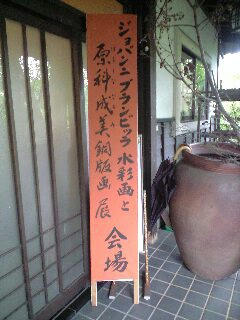 ジョバンニブランビッラ水彩画と
原科成美銅版画展
会場